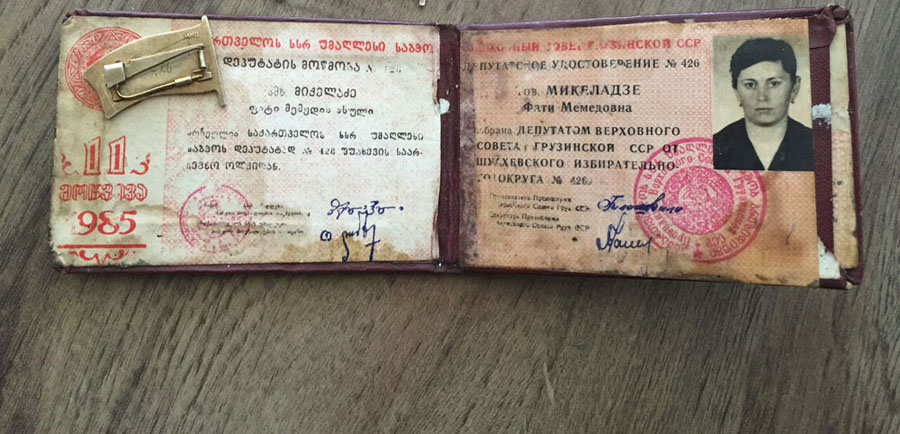 საქართველოს სსრ უმაღლესი საბჭო
დეპუტატის მოწმობა №
ამხ. მიქელაძე
ფატი მემედის ასული
არჩეულია საქართველოს სსრ უმაღლესი
საბჭოს დეპუტატად № 426 შუახევის საარ-
ჩევნო ოლქიდან.
11
მოწვევა
1985
ВЕРХОВНЫЙ СОВЕТ ГРУЗИНСКОЙ ССР
ДЕПУТАТСКОЕ УДОСТОВЕРЕНИЕ № 426
тов. МИКЕЛАДЗЕ
Фати Мемедовна
избрана ДЕПУТАТОМ ВЕРХОВНОГО
СОВЕТА ГРУЗИНСКОЙ ССР ОТ
ШУАХЕВСКОГО ИЗБИРАТЕЛЬНО-
ГО ОКРУГА № 426.
Председатель Президиума
Верховного Совета Груз. ССР
Секретарь Президиума
Верховного Совета Груз. ССР